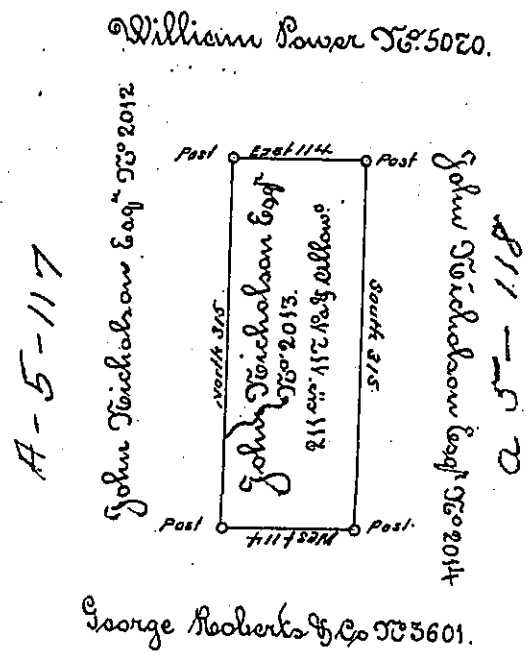 William Power No. 5020.
A-5-117
John Nicholson Esqr No 2012
Post
East 114
Post
North 315
John Nicholson Esqr
No 2013.
211 a.. 112 Ps & allowe
South 315
John Nicholson Esqr No 2014
5-118
Post
West 114
Post.
George Roberts & Co No 3601.